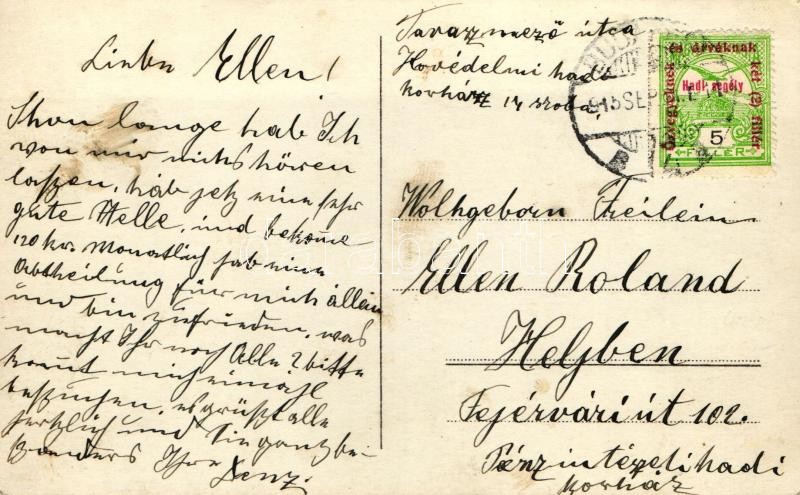 Liebe Ellen!
Schon lange hab Ich
von mir nichts hören
laszen, hab jetz eine sehr
gute Stelle, und bekome
120 kr. Monatlich hab eine
Abtheilung für mich allein
und bin zufrieden, was
macht Ihr noch Alle? bitte
kommt mich einmahl
beszuchen, es grüszt alle
herzlich und Sie ganz be-
szonders Ihre
Tavaszmező útca
Hovédelmi hadi
korház 14 szoba,
BUDAPEST
915 SEP
özvegyeknek és árváknak két (2) fillér
Hadi segély
5
FILLÉR
Wolhgeborn Freilein
Ellen Roland
Helyben
Fejérvári út 102.
Pénzintézeti hadi
korház